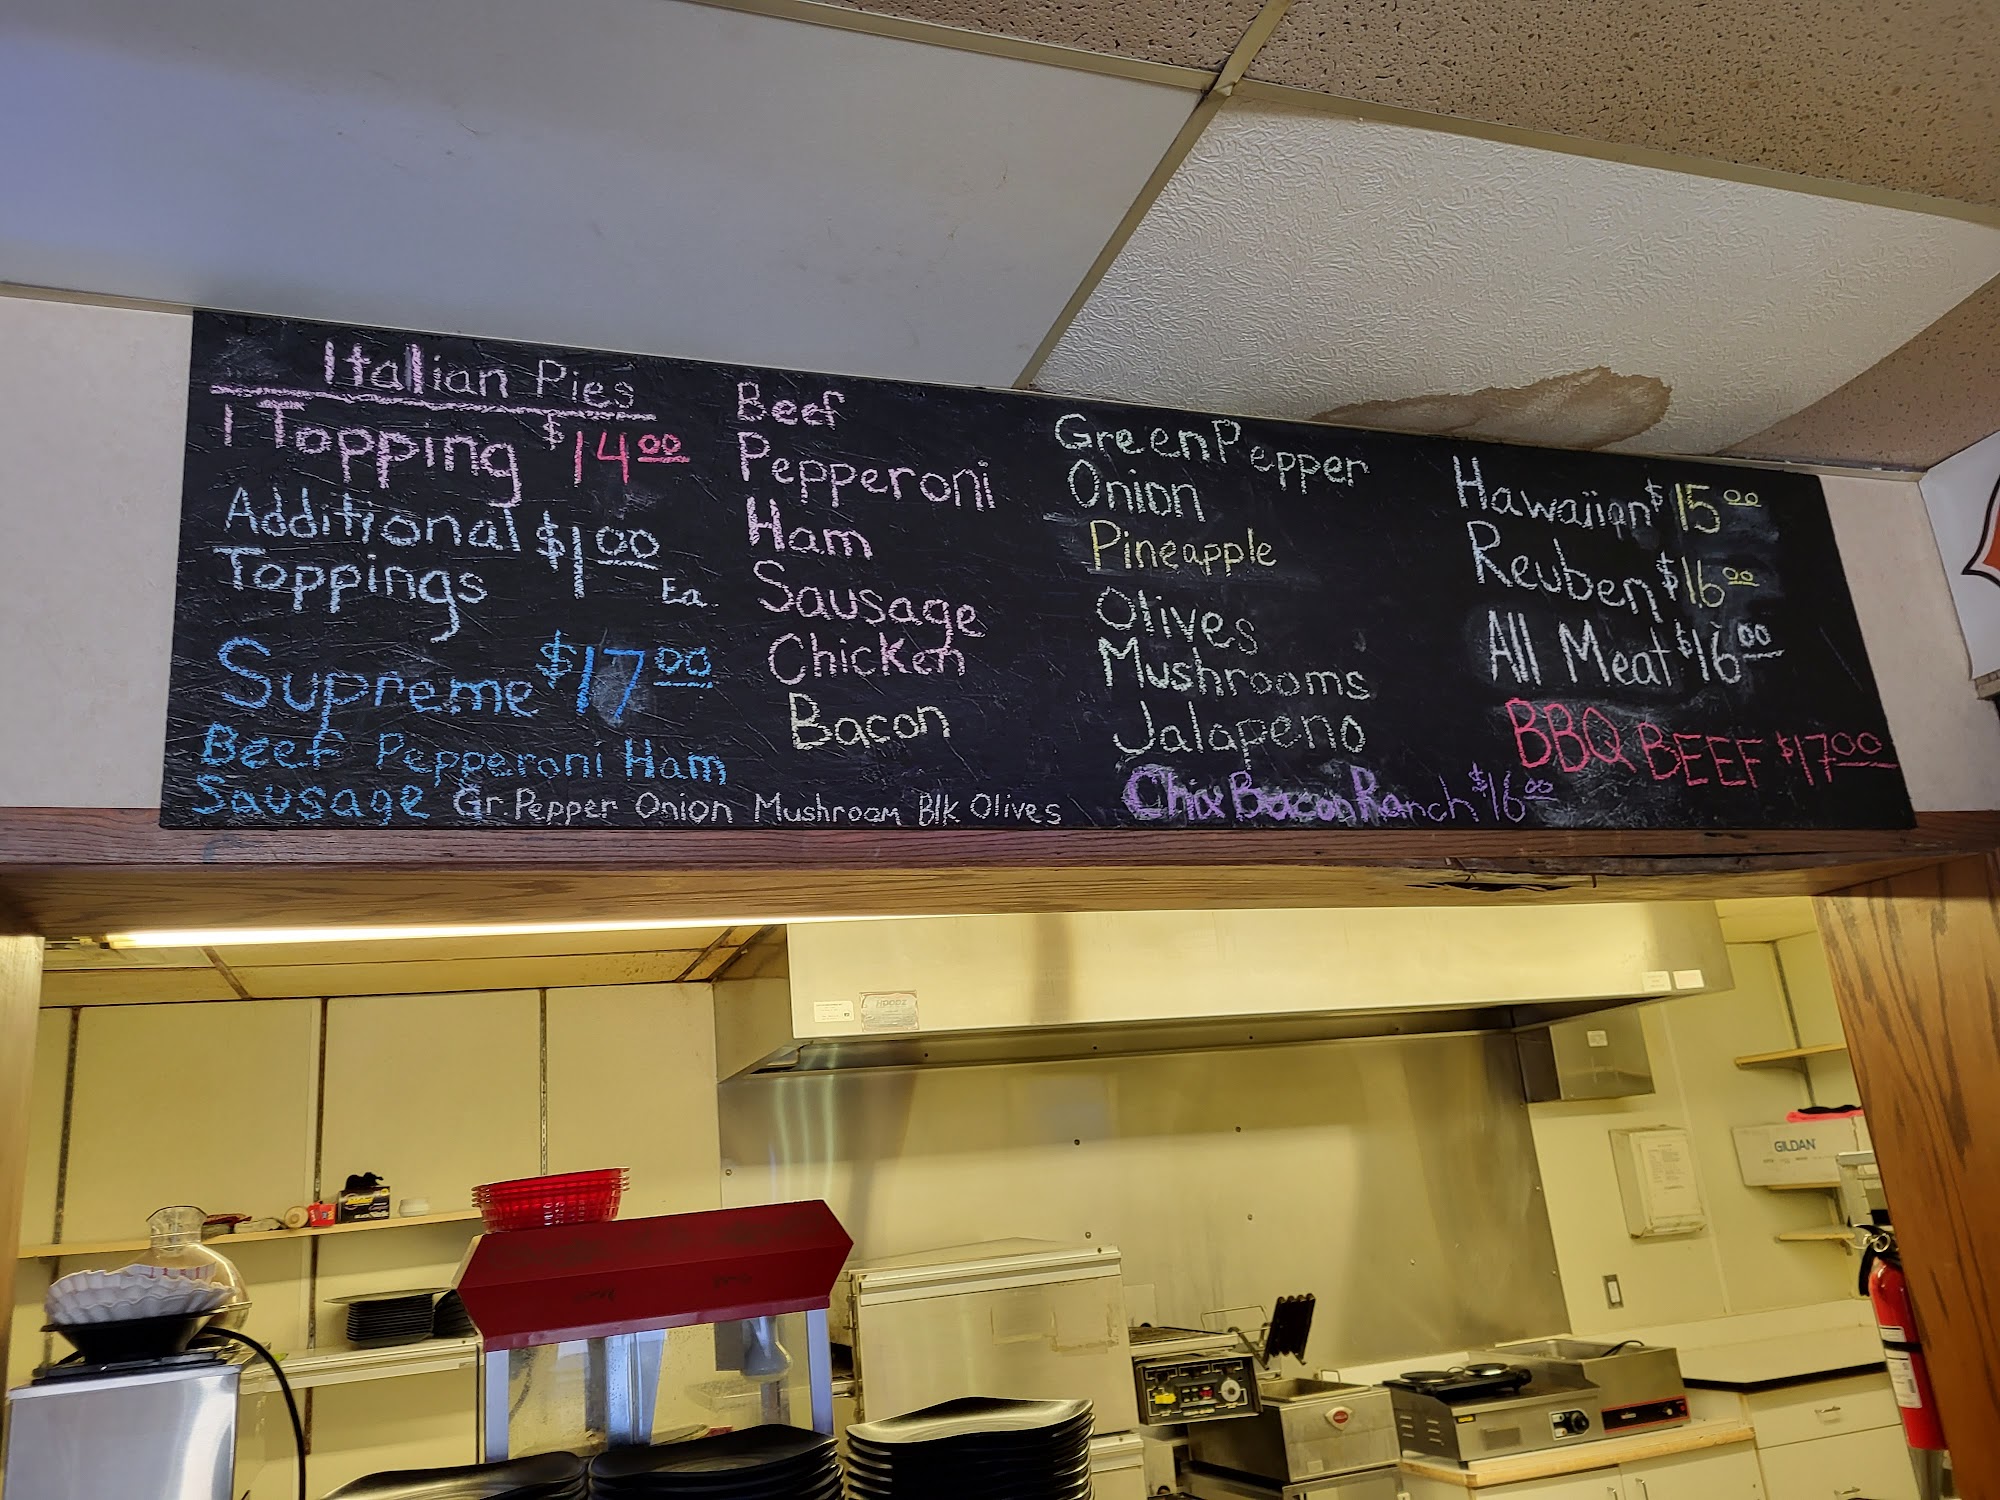 Italian Pies
1 Topping $14.00
Additional $1.00
Toppings Ea.
Supreme $17.00
Beef Pepperoni Ham
Sausage Gr. Pepper Onion Mushroom Blk Olives
Beef
Pepperoni
Ham
Sausage
Chicken
Bacon
Green Pepper
Onion
Pineapple
Olives
Mushrooms
Jalapeno
Chix Bacon Ranch $16.00
Hawaiian $15.00
Reuben $16.00
All Meat $16.00
BBQ BEEF $17.00
HOODZ
GILDAN